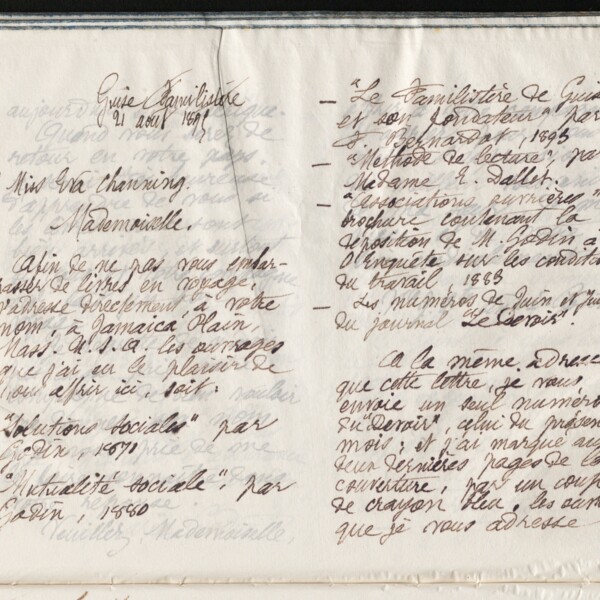 Guise Familistère
21 août 189
Miss Eva Channing.
Mademoiselle.
Afin de ne pas vous embar-
rasser de livres en voyage,
j'adresse directement, à votre
nom, à Jamaica Plain,
Mass. U.S.A. les ouvrages
que j'ai eu le plaisir de
vous offrir ici, soit:
"Solutions sociales" par
Godin, 1871
"Mutualité sociale", par
Godin, 1880
— "Le Familistère de Guise
et son fondateur" par
F. Bernardot, 1893
— "Méthode de lecture", par
Madame E. Dallet.
— "Associations ouvrières"
brochure contenant la
déposition de M. Godin à
l'Enquête sur les conditio
du travail 1883
— Les numéros de Juin et Jui
du journal "Le Devoir".
A la même adresse
que cette lettre, je vous
envoie un seul numéro
du "Devoir", celui du présent
mois; et j'ai marqué aux
deux dernières pages de la
couverture, par un coup
de crayon bleu, les ouvra
que je vous adresse